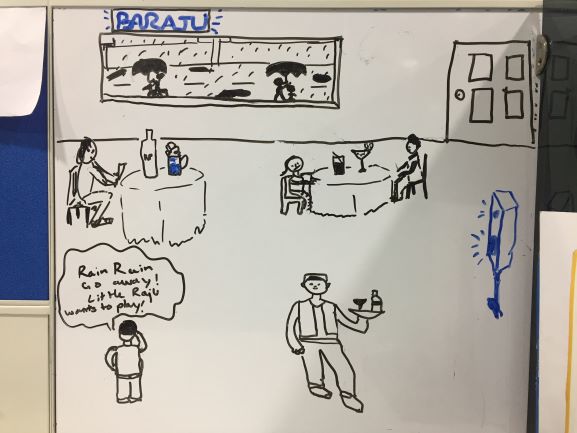 BARAJU
Rain Rain
Go away!
Little Raju
wants to play!